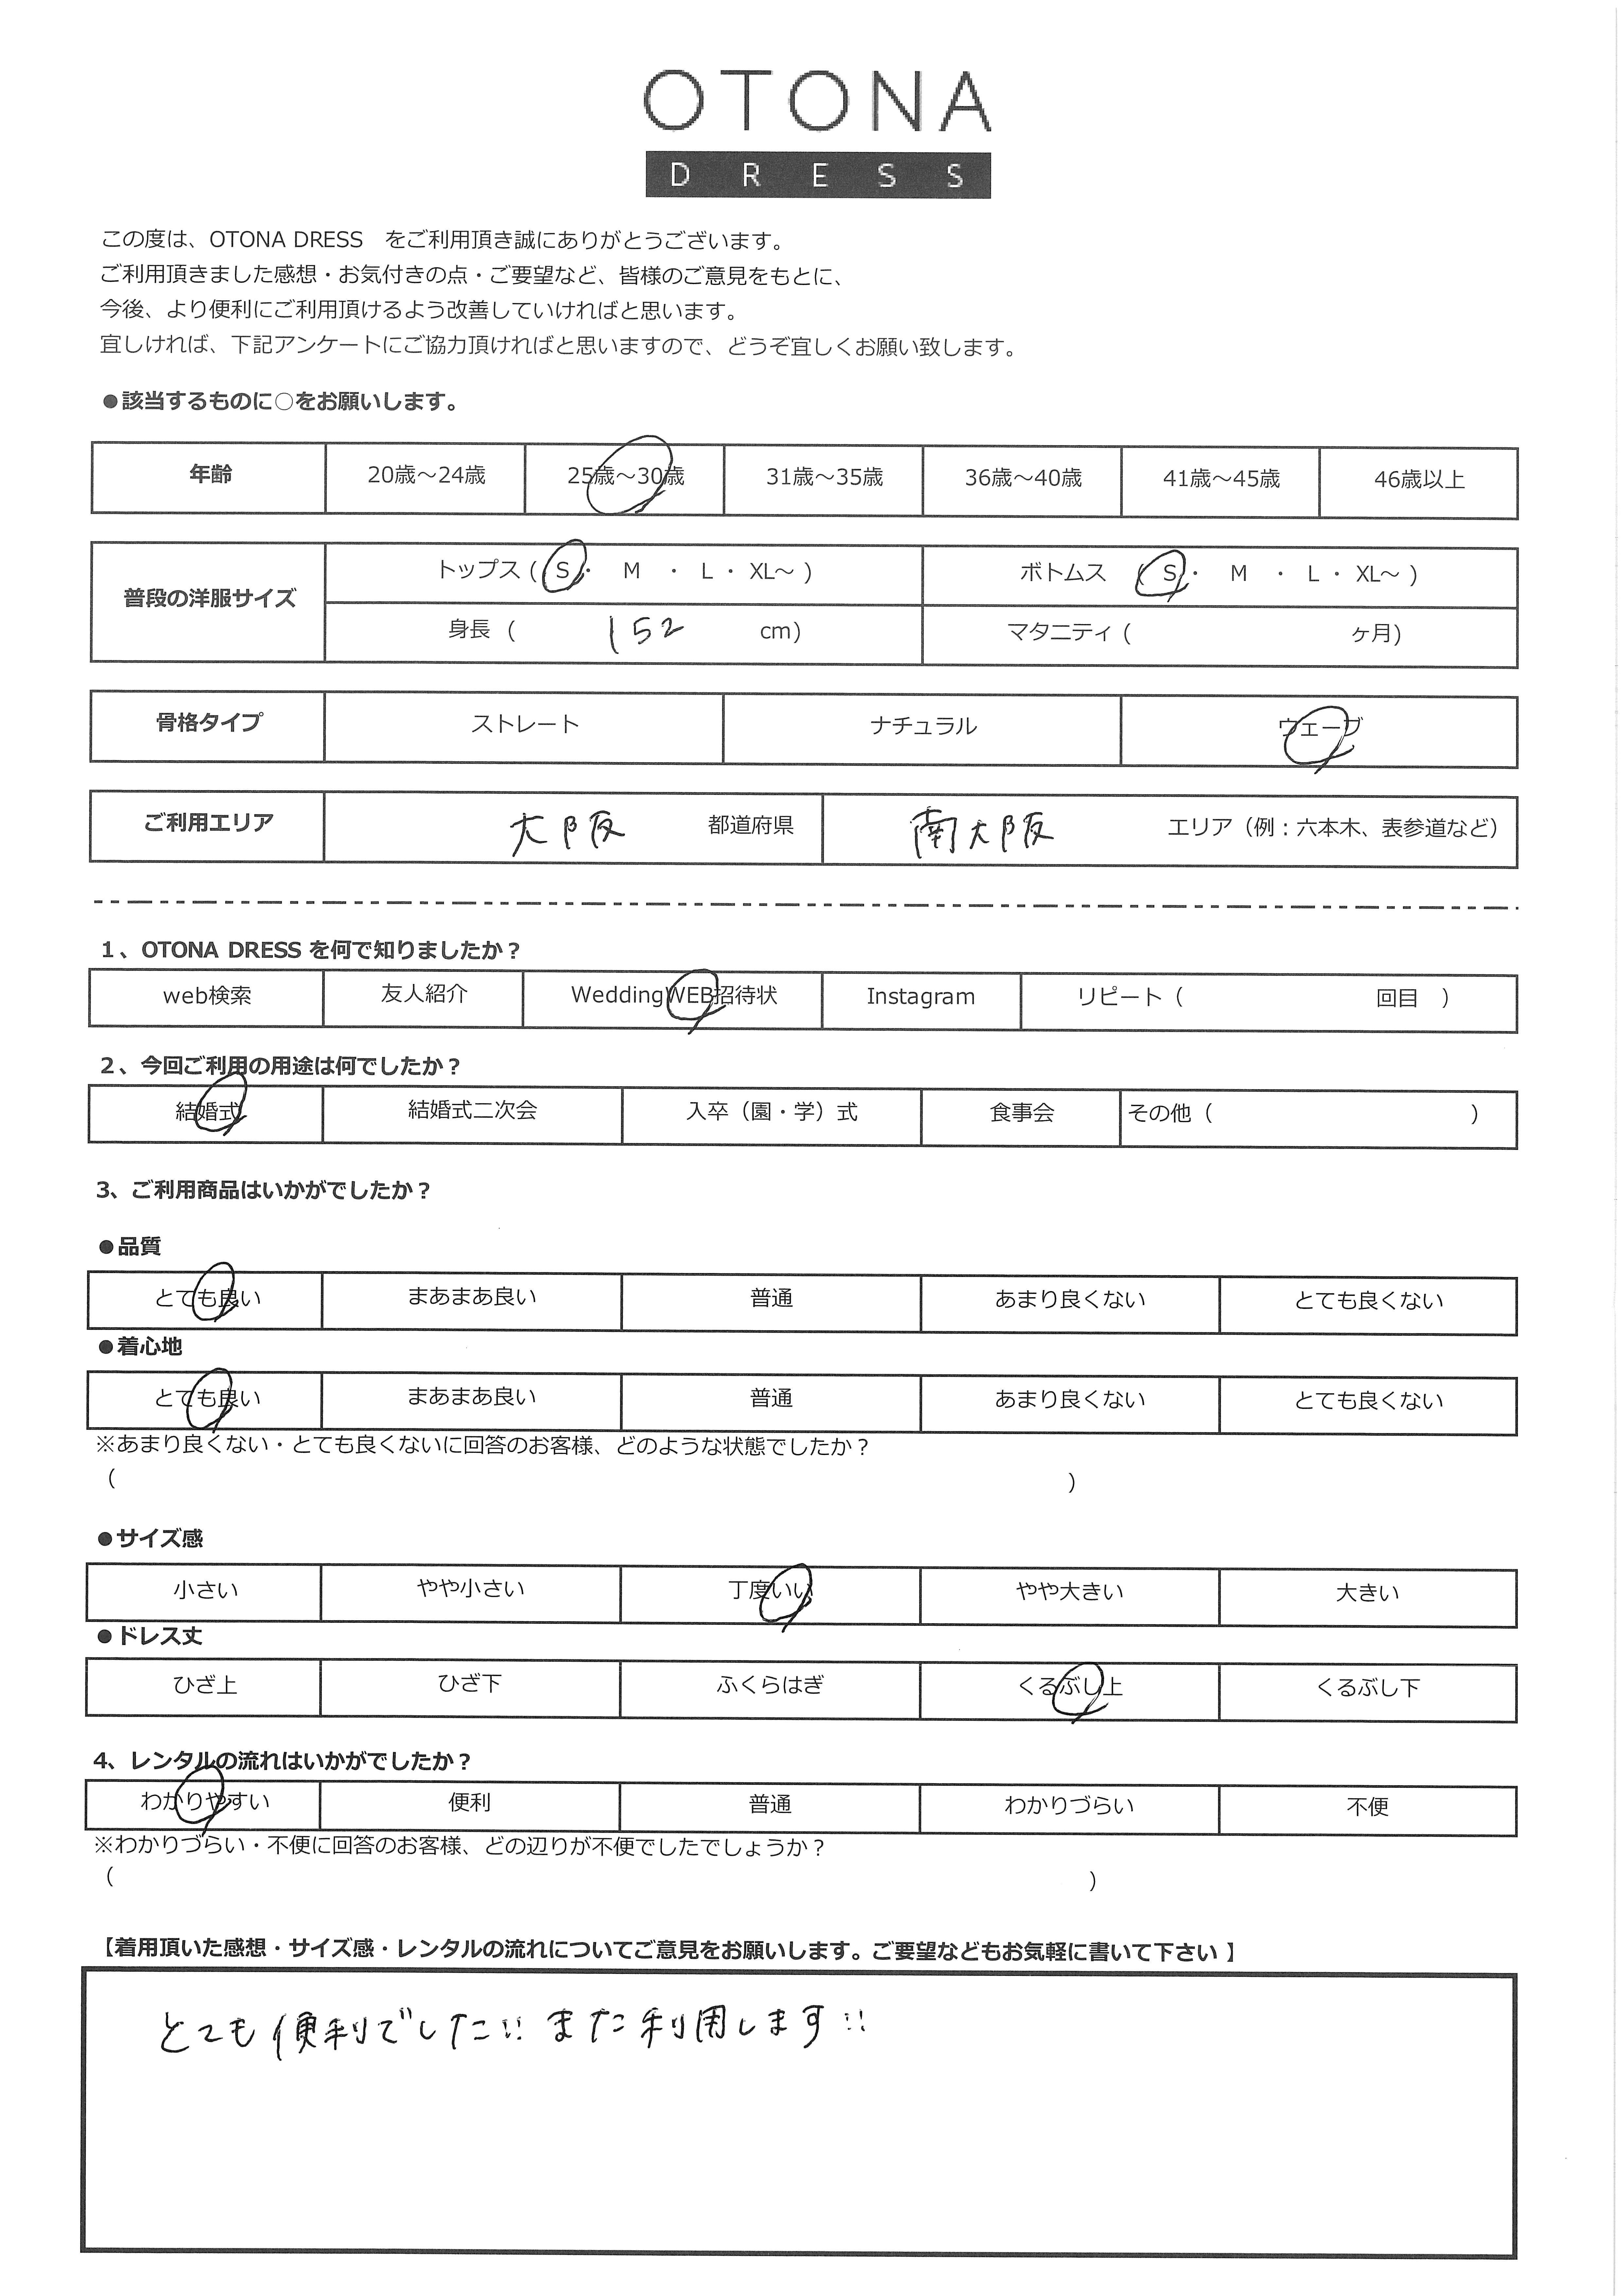 OTONA
DRESS
この度は、OTONA DRESS　をご利用頂き誠にありがとうございます。
ご利用頂きました感想・お気付きの点・ご要望など、皆様のご意見をもとに、
今後、より便利にご利用頂けるよう改善していければと思います。
宜しければ、下記アンケートにご協力頂ければと思いますので、どうぞ宜しくお願い致します。
●該当するものに○をお願いします。
年齢 20歳～24歳 25歳～30歳 31歳～35歳 36歳～40歳 41歳～45歳 46歳以上
普段の洋服サイズ トップス ( S ・ M ・ L ・ XL～ ) ボトムス ( S ・ M ・ L ・ XL～ )
身長 ( 152 cm) マタニティ ( ヶ月)
骨格タイプ ストレート ナチュラル ウェーブ
ご利用エリア 大阪 都道府県 南大阪 エリア（例：六本木、表参道など）
1、OTONA DRESS を何で知りましたか？
web検索 友人紹介 WeddingWEB招待状 Instagram リピート（ 回目 ）
2、今回ご利用の用途は何でしたか？
結婚式 結婚式二次会 入卒（園・学）式 食事会 その他（ ）
3、ご利用商品はいかがでしたか？
●品質
とても良い まあまあ良い 普通 あまり良くない とても良くない
●着心地
とても良い まあまあ良い 普通 あまり良くない とても良くない
※あまり良くない・とても良くないに回答のお客様、どのような状態でしたか？
（ ）
●サイズ感
小さい やや小さい 丁度いい やや大きい 大きい
●ドレス丈
ひざ上 ひざ下 ふくらはぎ くるぶし上 くるぶし下
4、レンタルの流れはいかがでしたか？
わかりやすい 便利 普通 わかりづらい 不便
※わかりづらい・不便に回答のお客様、どの辺りが不便でしたでしょうか？
（ ）
【着用頂いた感想・サイズ感・レンタルの流れについてご意見をお願いします。ご要望などもお気軽に書いて下さい】
とても便利でした!! また利用します!!